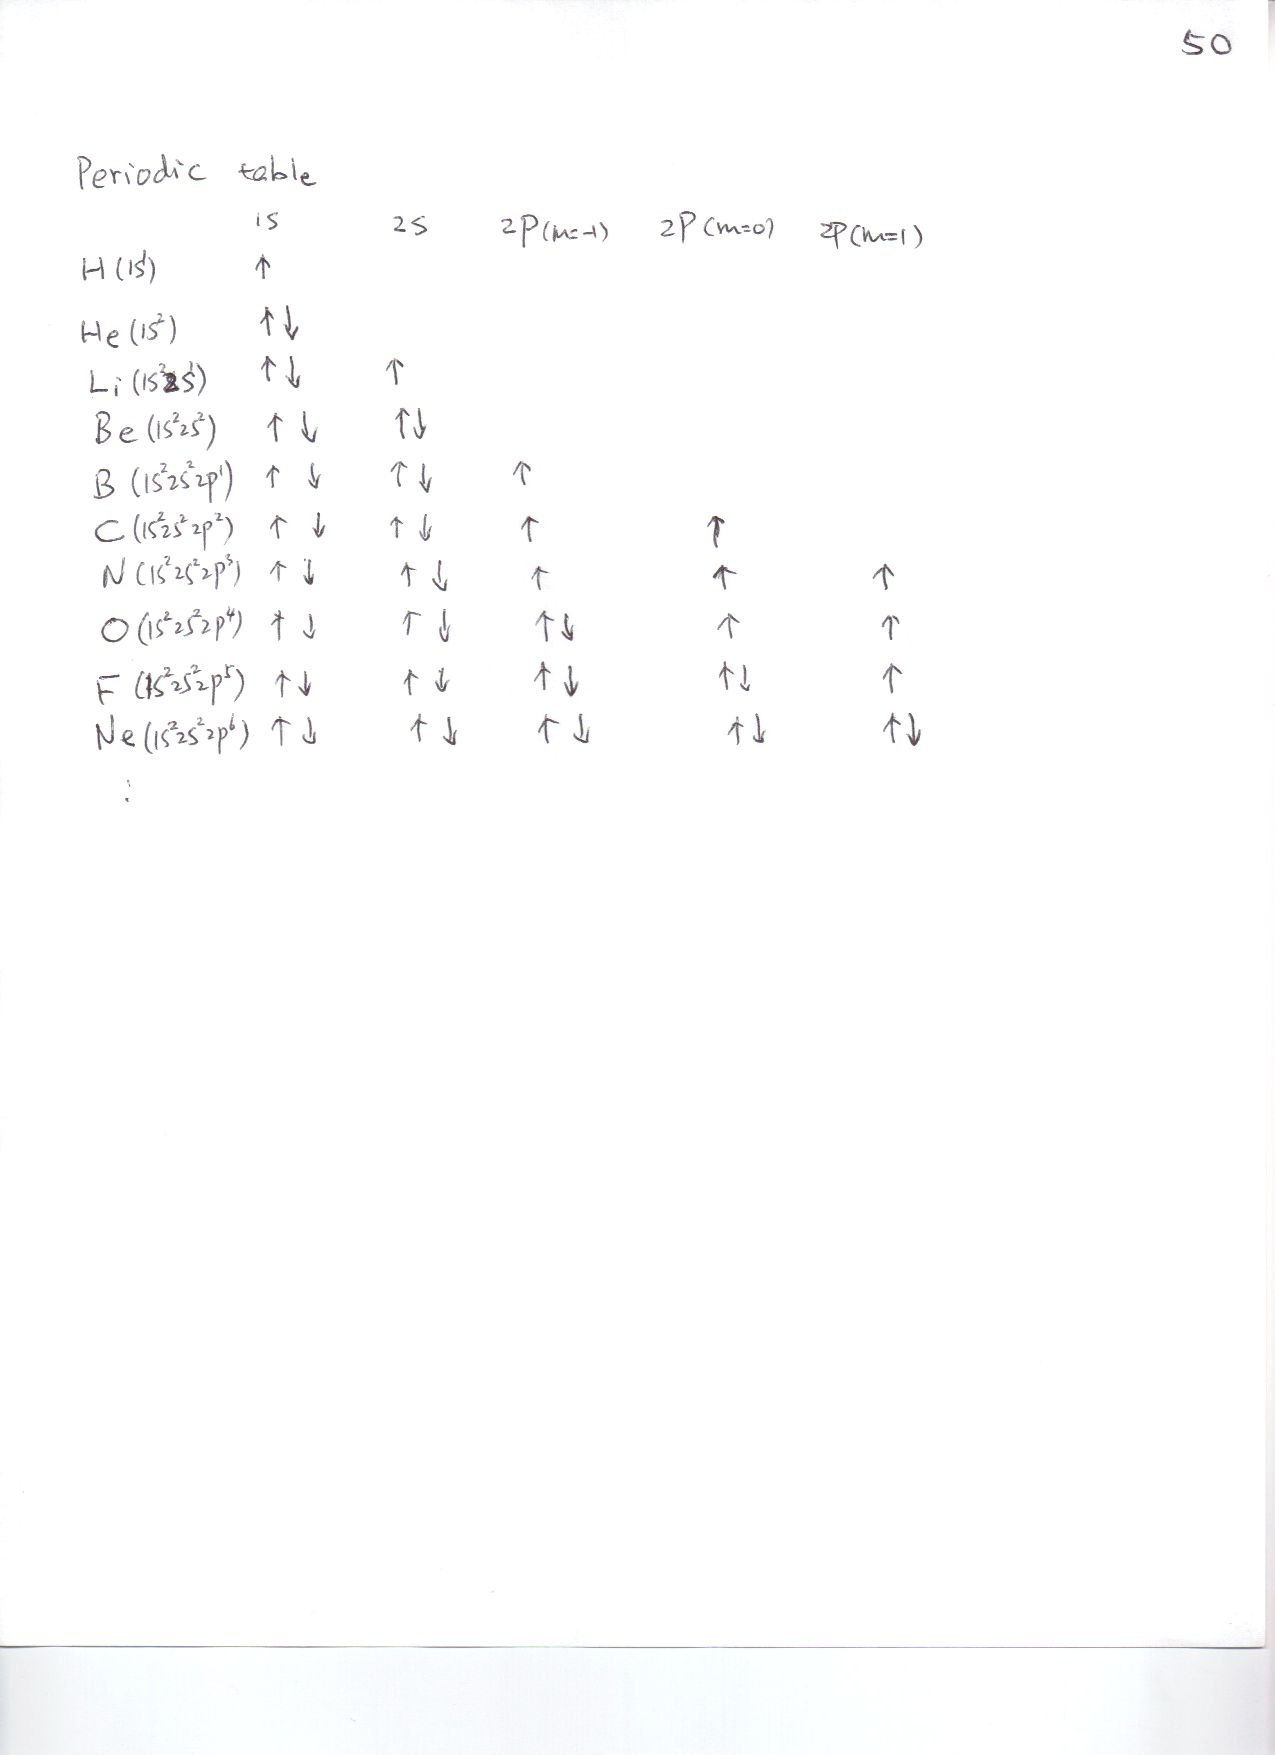 50
Periodic table
1s 2s 2p(m=-1) 2p(m=0) 2p(m=1)
H(1s¹) ↑
He(1s²) ↑↓
Li(1s²2s¹) ↑↓ ↑
Be(1s²2s²) ↑↓ ↑↓
B(1s²2s²2p¹) ↑↓ ↑↓ ↑
C(1s²2s²2p²) ↑↓ ↑↓ ↑ ↑
N(1s²2s²2p³) ↑↓ ↑↓ ↑ ↑ ↑
O(1s²2s²2p⁴) ↑↓ ↑↓ ↑↓ ↑ ↑
F(1s²2s²2p⁵) ↑↓ ↑↓ ↑↓ ↑↓ ↑
Ne(1s²2s²2p⁶) ↑↓ ↑↓ ↑↓ ↑↓ ↑↓
⋮